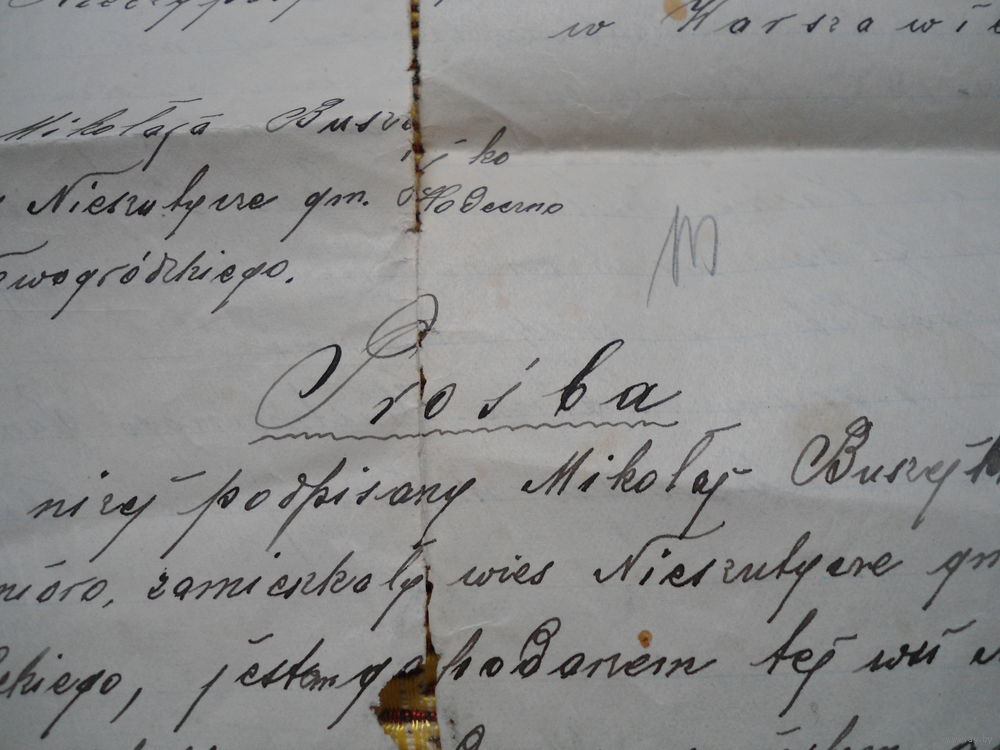 w Warszawie
Mikołaja Buszejko
Nieszutycze gm. Hordeczno
owogródzkiego.
Prośba
niżej podpisany Mikołaj Buszejk
mióro, zamieszkały wieś Nieszutycze gm
ckiego, jestem gospodarzem tej wsi